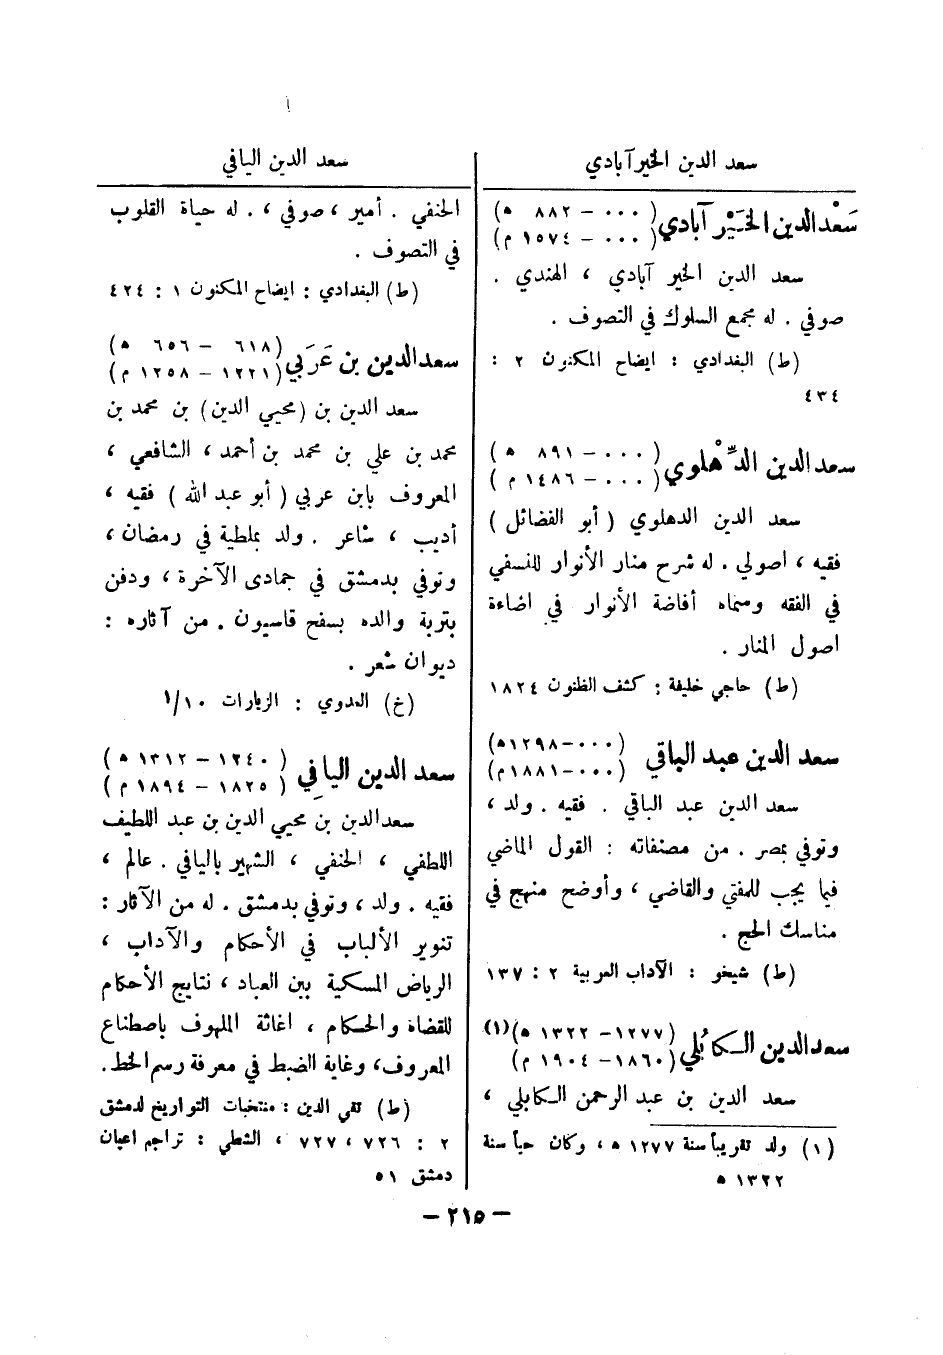 سعد الدين الخير آبادي
سَعْد الدين الخَيْر آبادي (٠٠٠ – ٨٨٢ هـ)
(٠٠٠ – ١٥٧٤ م)
سعد الدين الخير آبادي ، الهندي .
صوفي . له مجمع السلوك في التصوف .
(ط) البغدادي : ايضاح المكنون ٢ :
٤٣٤
سعد الدين الدِّهْلوي (٠٠٠ – ٨٩١ هـ)
(٠٠٠ – ١٤٨٦ م)
سعد الدين الدهلوي ( أبو الفضائل )
فقيه ، اصولي . له شرح منار الأنوار للنسفي
في الفقه وسماه أفاضة الأنوار في اضاءة
اصول المنار .
(ط) حاجي خليفة : كشف الظنون ١٨٢٤
سعد الدين عبد الباقي (٠٠٠–١٢٩٨هـ)
(٠٠٠–١٨٨١م)
سعد الدين عبد الباقي . فقيه . ولد ،
وتوفي بمصر . من مصنفاته : القول الماضي
فيما يجب للمفتي والقاضي ، وأوضح منهج في
مناسك الحج .
(ط) شيخو : الآداب العربية ٢ : ١٣٧
سعد الدين الكابُلي (١٢٧٧– ١٣٢٢ هـ)(١)
(١٨٦٠– ١٩٠٤ م)
سعد الدين بن عبد الرحمن الكابلي ،
(١) ولد تقريباً سنة ١٢٧٧ هـ ، وكان حياً سنة
١٣٢٢ هـ
سعد الدين اليافي
الحنفي . أمير ، صوفي ، . له حياة القلوب
في التصوف .
(ط) البغدادي : ايضاح المكنون ١ : ٤٢٤
سعد الدين بن عَرَبي (٦١٨ – ٦٥٦ هـ)
(١٢٢١ – ١٢٥٨ م)
سعد الدين بن (محيي الدين) بن محمد بن
محمد بن علي بن محمد بن أحمد ، الشافعي ،
المعروف بابن عربي ( أبو عبد الله ) فقيه ،
أديب ، شاعر . ولد بملطية في رمضان ،
وتوفي بدمشق في جمادى الآخرة ، ودفن
بتربة والده بسفح قاسيون . من آثاره :
ديوان شعر .
(خ) العدوي : الزيارات ١٠/أ
سعد الدين اليافي (١٢٤٠ – ١٣١٢ هـ)
(١٨٢٥ – ١٨٩٤ م)
سعد الدين بن محيي الدين بن عبد اللطيف
اللطفي ، الحنفي ، الشهير باليافي . عالم ،
فقيه . ولد ، وتوفي بدمشق . له من الآثار :
تنوير الألباب في الأحكام والآداب ،
الرياض المسكية بين العباد ، نتايج الأحكام
للقضاة والحكام ، اغاثة الملهوف باصطناع
المعروف، وغاية الضبط في معرفة رسم الخط.
(ط) تقي الدين : منتخبات التواريخ لدمشق
٢ : ٧٢٦ ، ٧٢٧ ، الشطي : تراجم اعيان
دمشق ٥١
– ٢١٥ –